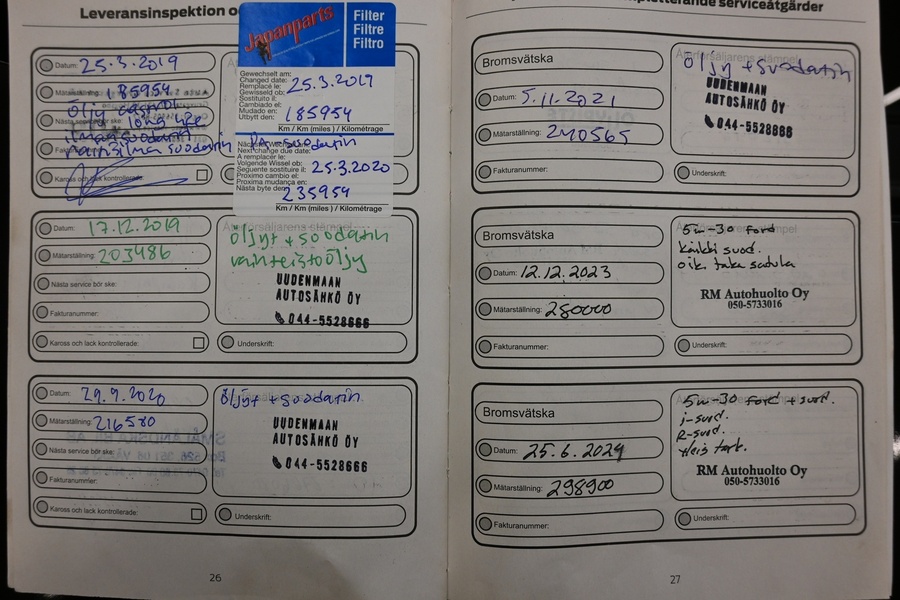 Leveransinspektion o
Datum: 25.3.2019
Mätarställning: 185954
öljy castrol
long life
ilmansuodatin
raitisilma suodatin PA-suodatin
Kaross och lack kontrollerade:
Japanparts
Filter
Filtre
Filtro
Gewechselt am:
Changed date:
Remplacé le:
Gewisseld ob:
Sostituito il:
Cambiado el:
Mudado en:
Utbytt den:
25.3.2019
185954
Km / Km (miles) / Kilométrage
Next change due date:
A remplacer le:
Volgende Wissel ob:
Seguente sostituire il:
Proxima cambio en:
Proxima mudança en:
Nästa byte den:
25.3.2020
235954
Km / Km (miles) / Kilométrage
Datum: 17.12.2019
Mätarställning: 203486
Nästa service bör ske:
Fakturanummer:
Kaross och lack kontrollerade:
Återförsäljarens stämpel
öljyt + suodatin
vaihteistoöljy
UUDENMAAN
AUTOSÄHKÖ OY
044-5528666
Underskrift:
Datum: 29.9.2020
Mätarställning: 216580
Nästa service bör ske:
Fakturanummer:
Kaross och lack kontrollerade:
öljyt + suodatin
UUDENMAAN
AUTOSÄHKÖ OY
044-5528666
Underskrift:
26
kompletterande serviceåtgärder
Bromsvätska
Datum: 5.11.2021
Mätarställning: 240565
Fakturanummer:
Återförsäljarens stämpel
Öljy + suodatin
UUDENMAAN
AUTOSÄHKÖ OY
044-5528666
Underskrift:
Bromsvätska
Datum: 12.12.2023
Mätarställning: 280000
Fakturanummer:
Återförsäljarens stämpel
5w-30 ford
kaikki suod.
oik. taka satula
RM Autohuolto Oy
050-5733016
Underskrift:
Bromsvätska
Datum: 25.6.2024
Mätarställning: 298900
Fakturanummer:
5w-30 ford + suod.
i-suod.
R-suod.
Yleis tark.
RM Autohuolto Oy
050-5733016
Underskrift:
27